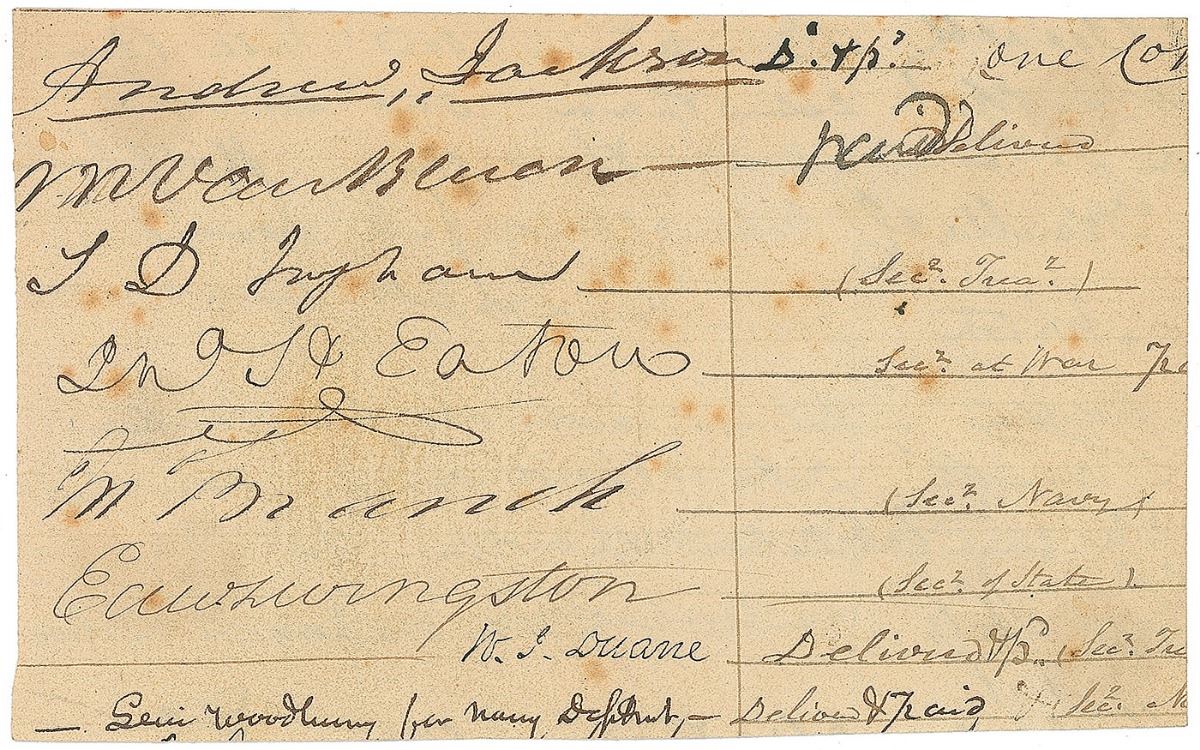 Andrew Jackson D. & p. one Co
M Van Buren — paid Delivered
S D Ingham (Secy. Trea.)
Jno H Eaton Secy. at War
Jn Branch (Secy. Navy)
Edw Livingston (Secy. of State).
W. J. Duane Delivered & p. (Secy. Tre
— Levi Woodbury for Navy Depmt, — Delivered & paid, Secy. N